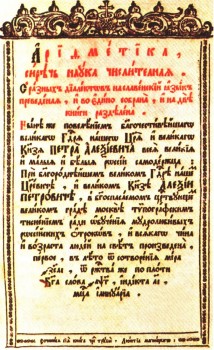 Аріѳметіка
сирѣчь наука числителная.
С разныхъ діалектовъ на славенскій языкъ
преведеная, и во едино собрана, и на двѣ
книги раздѣлена.
Нынѣ же повелѣніемъ благочестивѣйшагѡ
великагѡ Гдря нашегѡ Цря и великагѡ
Кнзя Петра Алеѯіевича всея великія и
малыя и бѣлыя рѡссіи самодержца
При благороднѣйшемъ великомъ Гдрѣ нашемъ
Цревичѣ, и великомъ Кнзѣ Алеѯіи
Петровичѣ, в богоспасаемомъ црствующемъ
великомъ градѣ москвѣ тѵпографскимъ
тисненіемъ ради ѡбученія мудролюбивыхъ
рѡссійскихъ ѻтрокѡвъ, и всякагѡ чина
и возраста людей на свѣтъ произведена,
первое, в лѣто ѿ сотворенія мира
҂зсаі, ѿ ржтва же по плоти
Бга слова ҂аѱг, індікта аі
мсца іаннуарія.
сочинися сія книга чрез труды Леѻнтіа магницкагѡ